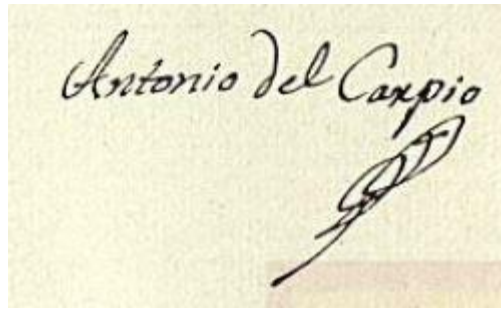 Antonio del Carpio